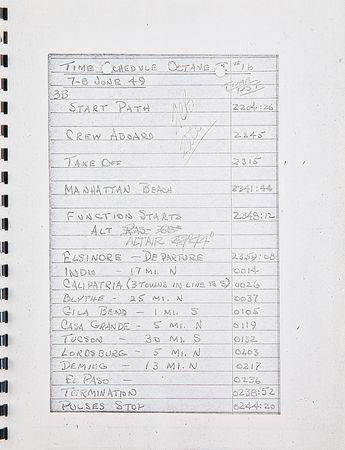 TIME SCHEDULE OCTAVE #16
7-8 JUNE 49
3B
TIME
PST
START PATH 2204:26
CREW ABOARD 2245
TAKE OFF 2315
MANHATTAN BEACH 2341:44
FUNCTION STARTS 2348:12
ALT
ALTAIR 44°
ELSINORE - DEPARTURE 2359:08
INDIO - 17 MI. N 0014
CALIPATRIA (3 TOWNS IN LINE TO S) 0026
BLYTHE - 25 MI. N 0037
GILA BEND - 1 MI. S 0105
CASA GRANDE - 5 MI. N 0119
TUCSON - 30 MI. S 0132
LORDSBURG - 5 MI. N 0203
DEMING - 13 MI. N 0217
EL PASO - 0236
TERMINATION 0238:52
PULSES STOP 0244:20